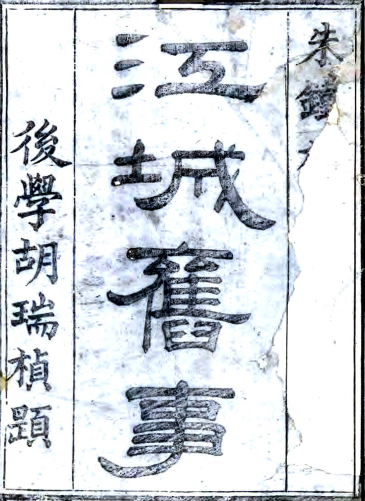 朱鍾
江城舊事
後學胡瑞楨題